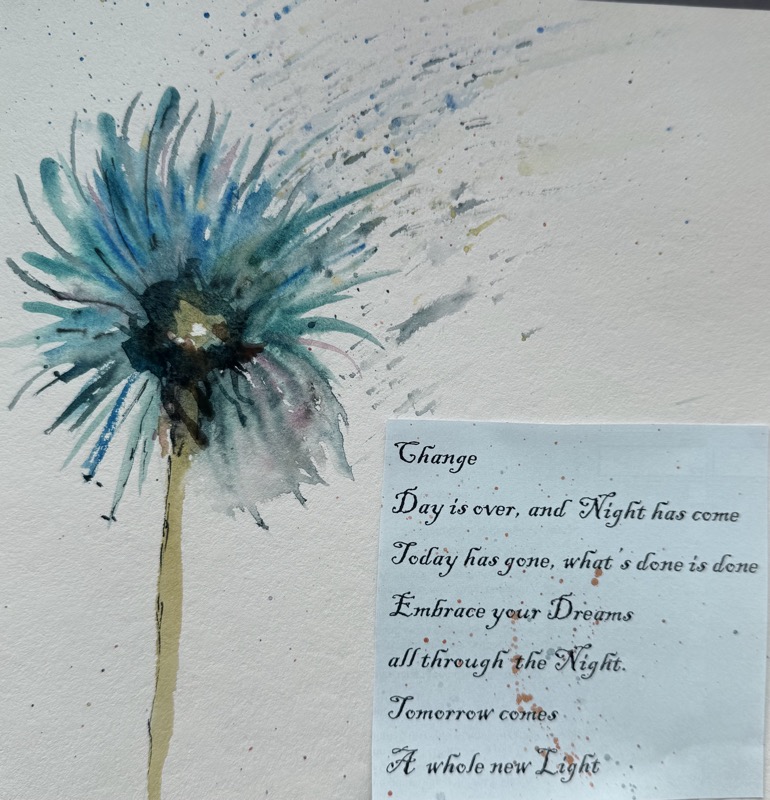 Change
Day is over, and Night has come
Today has gone, what's done is done
Embrace your Dreams
all through the Night.
Tomorrow comes
A whole new Light